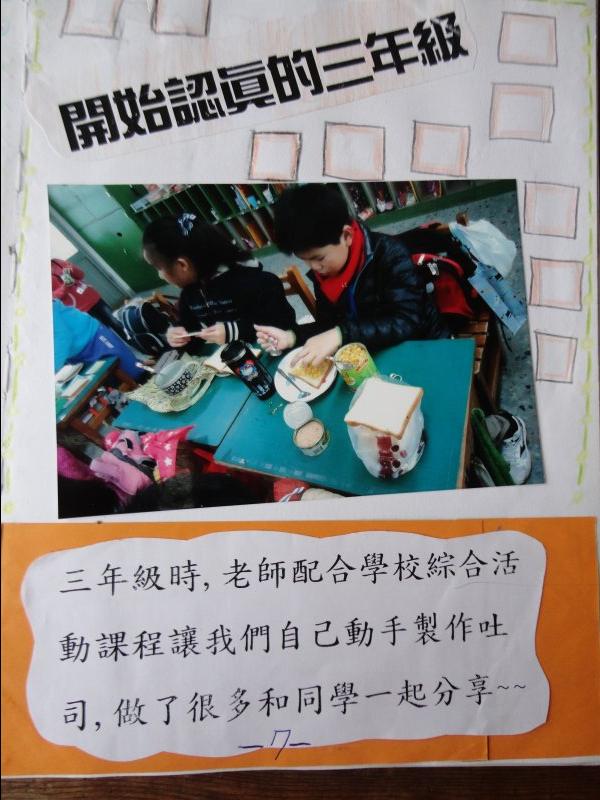 開始認眞的三年級
三年級時,老師配合學校綜合活
動課程讓我們自己動手製作吐
司,做了很多和同學一起分享~~
-7-